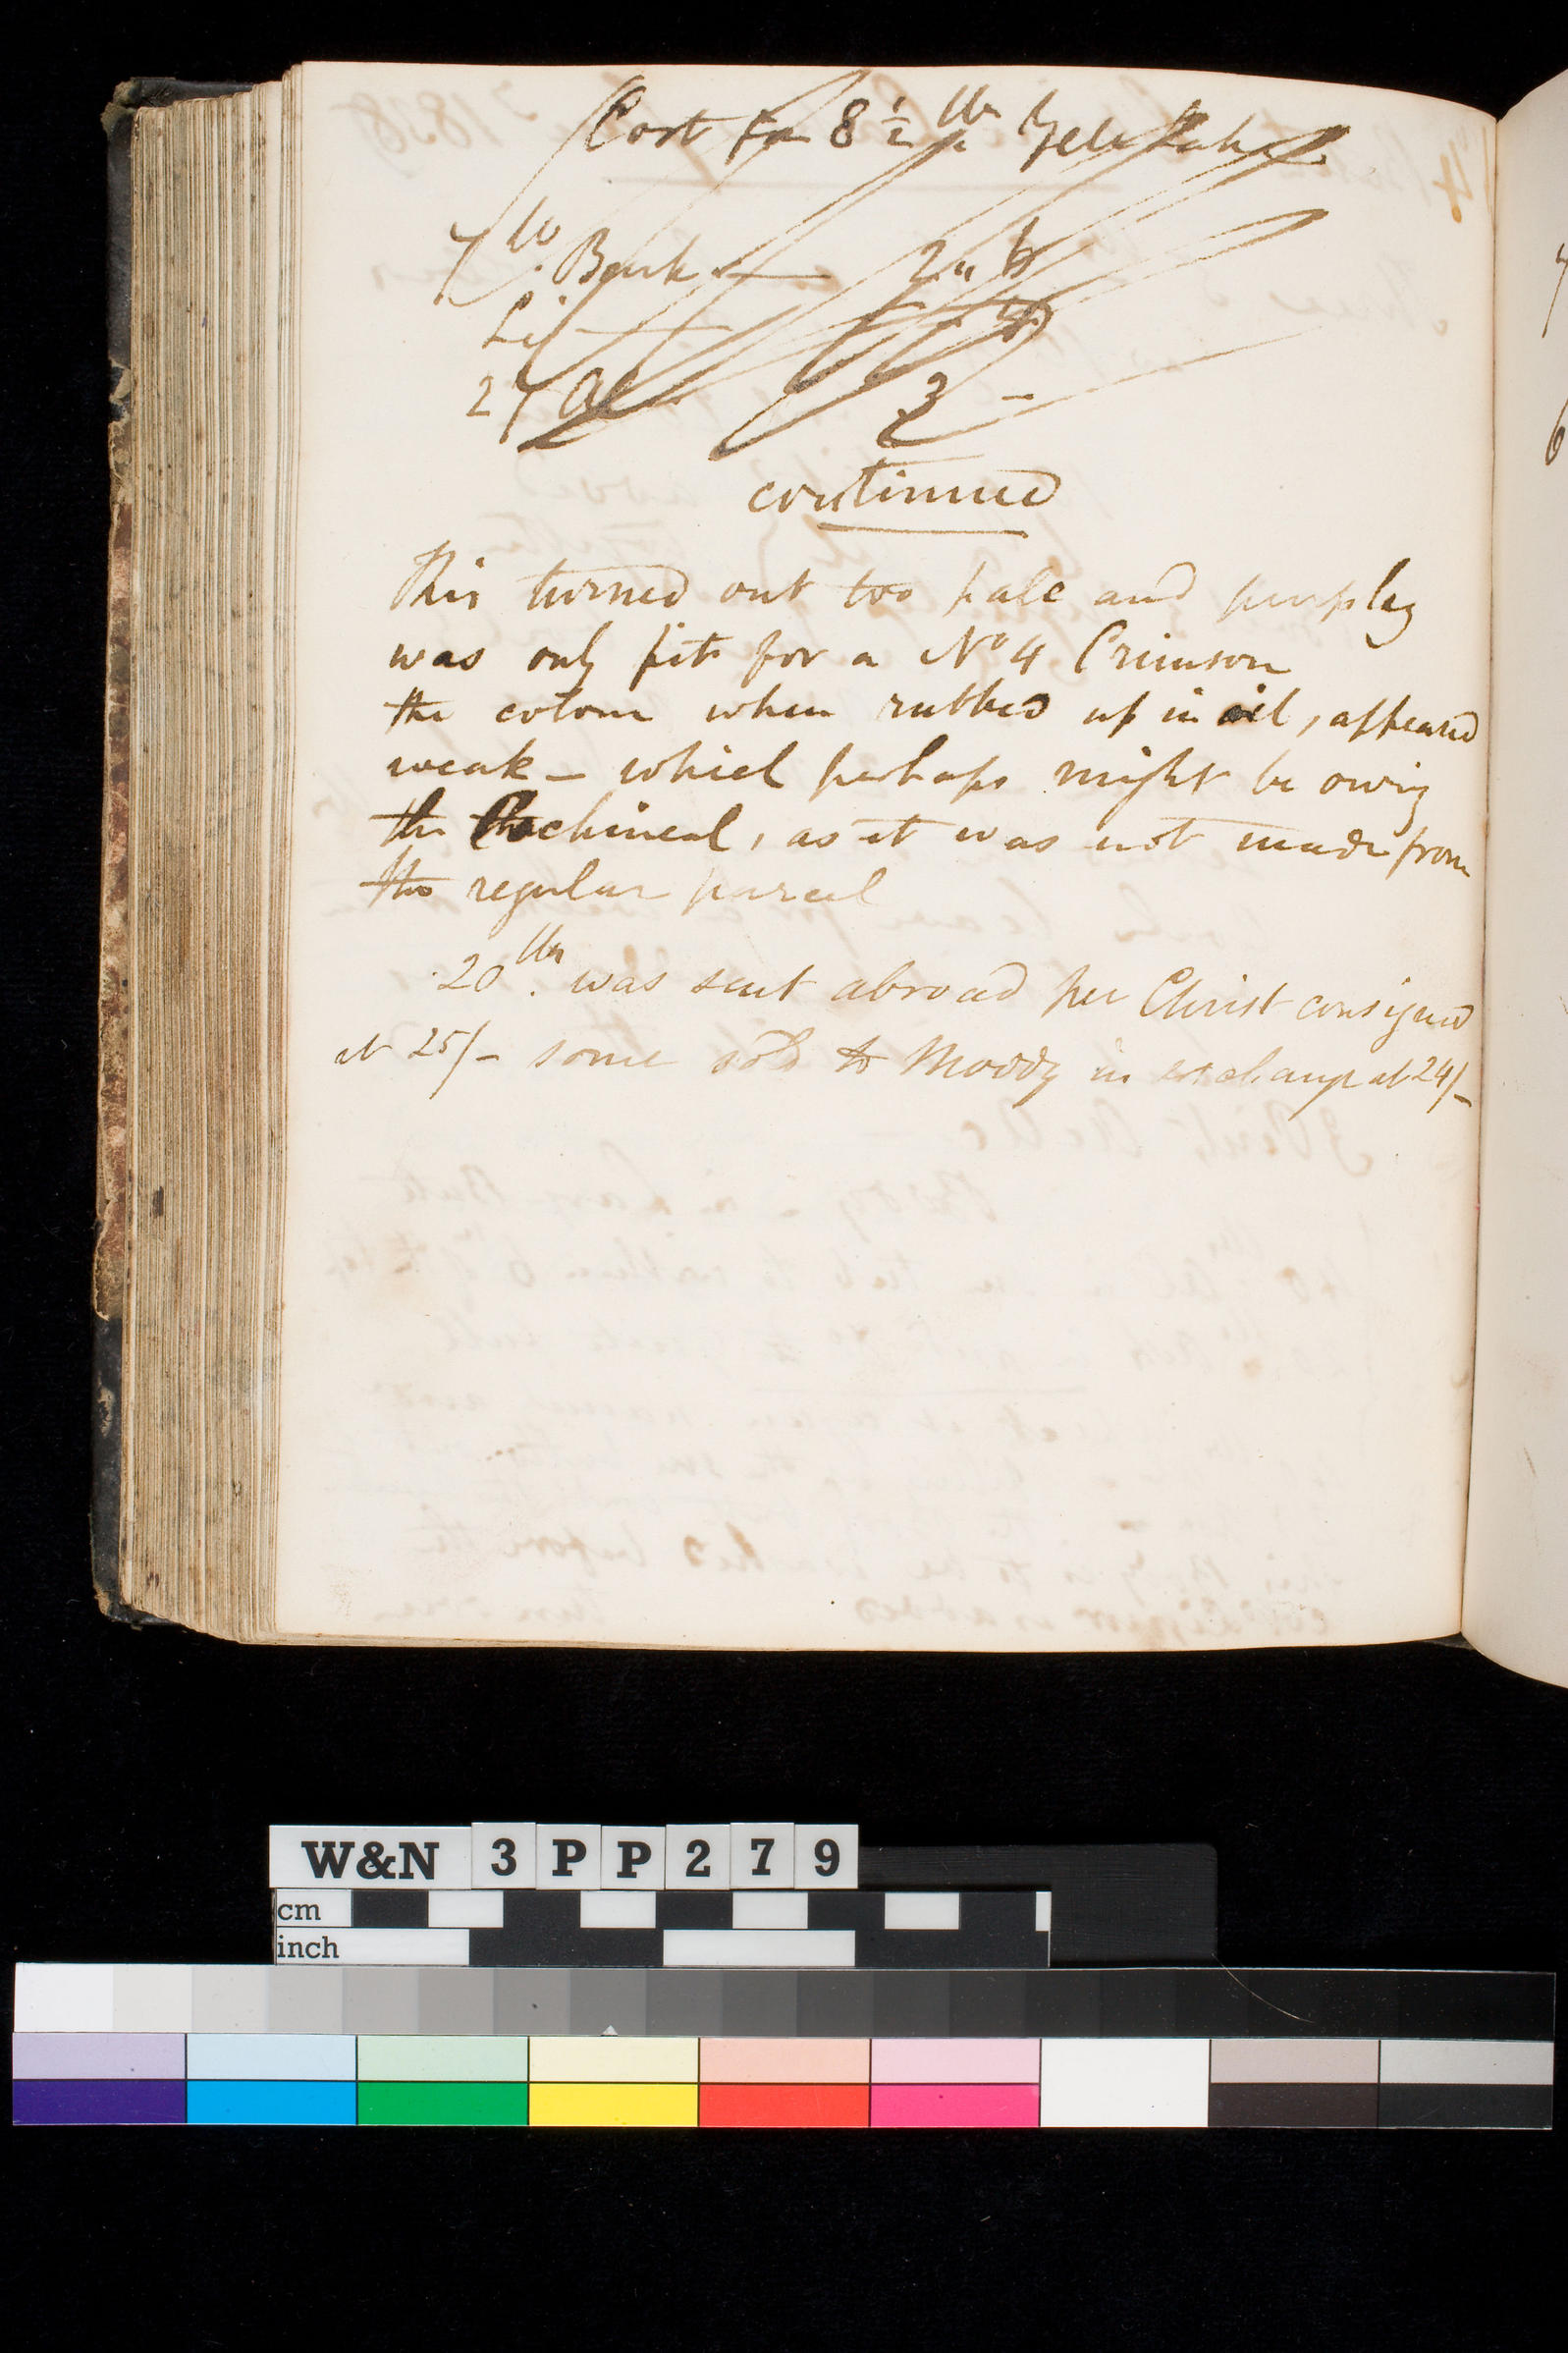 Cost for 8 1/2 lbs Yelw Lake
7 lb. Bark — 2 " 6
Li —
27 Al 3 -
continued
This turned out too pale and purpley
was only fit for a No 4 Crimson
the colour when rubbed up in oil, appeared
weak – which perhaps might be owing
the Cochineal, as it was not made from
the regular parcel
20 lbs. was sent abroad per Christ consigned
at 25/- some sold to Moody in exchange at 24/-
W&N 3PP279
cm
inch